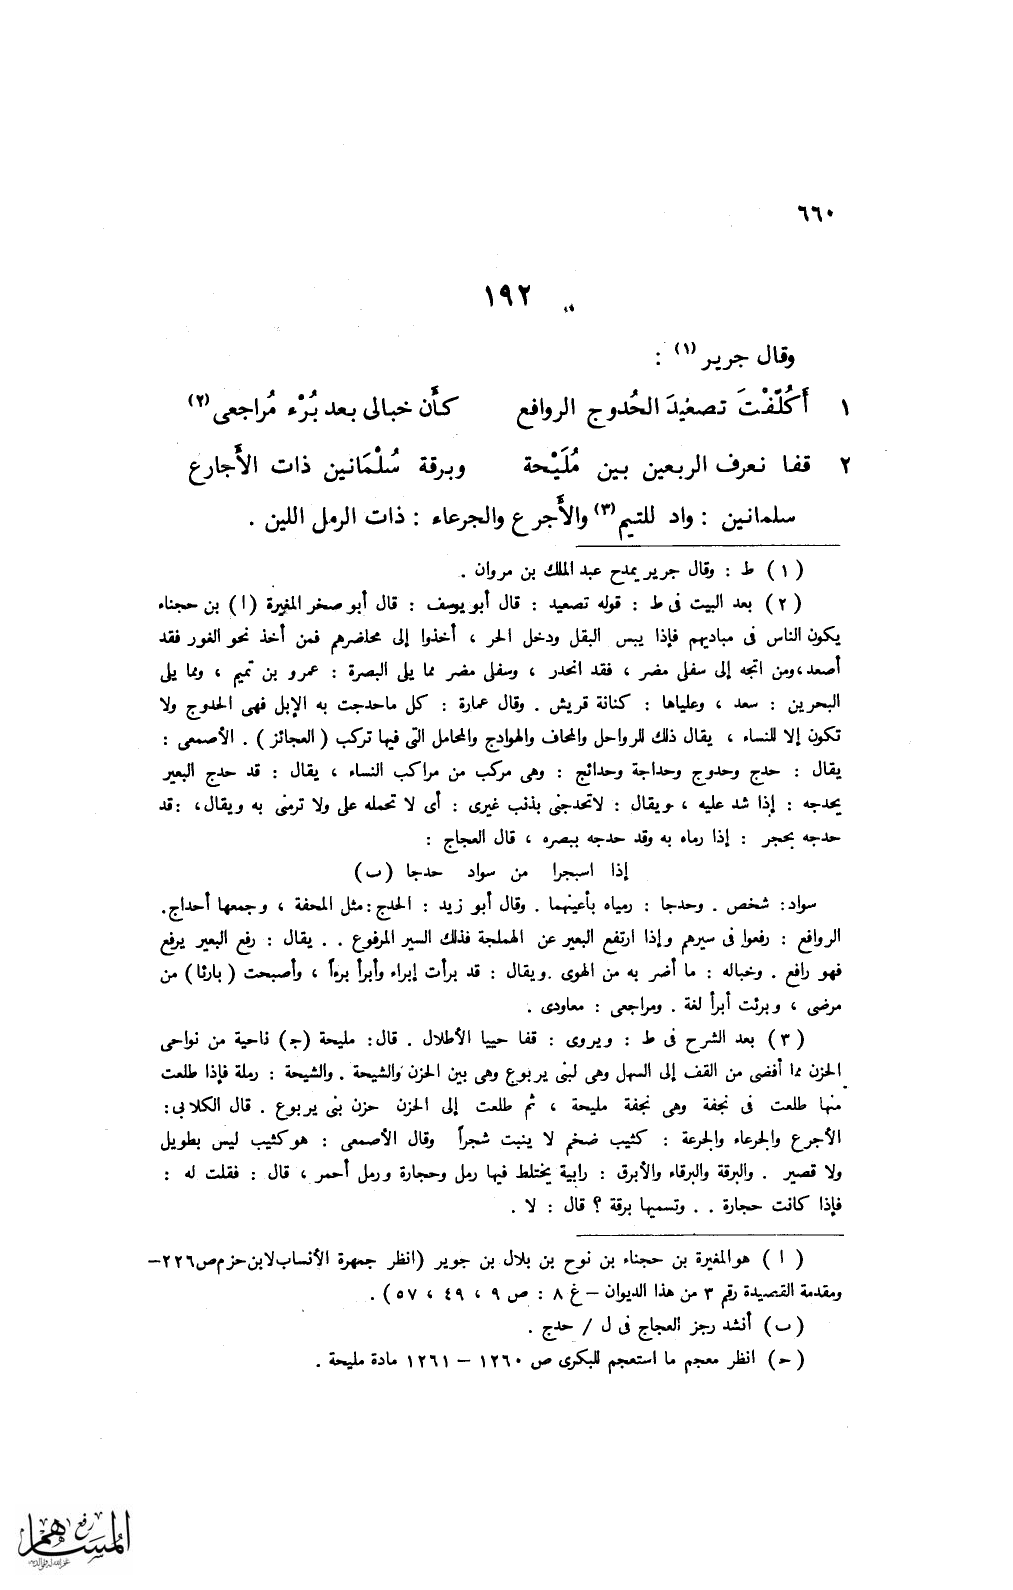 ٦٦٠
١٩٢
وقال جرير (١) :
١ أَكُلِّفْتَ تصعْيدَ الحُدوج الروافع كأَن خبالى بعد بُرْء مُراجعى (٢)
٢ قفا نعرف الربعين بين مُلَيْحة وبرقة سُلْمَانين ذات الأَجارع
سلمانين : واد للتيم (٣) والأَجرع والجرعاء : ذات الرمل اللين .
(١) ط : وقال جرير يمدح عبد الملك بن مروان .
(٢) بعد البيت فى ط : قوله تصعيد : قال أبو يوسف : قال أبو صخر المغيرة (ا) بن حجناء
يكون الناس فى مباديهم فإذا يبس البقل ودخل الحر ، أخذوا إلى محاضرهم فمن أخذ نحو الغور فقد
أصعد،ومن اتجه إلى سفلى مضر ، فقد انحدر ، وسفلى مضر مما يلى البصرة : عمرو بن تميم ، ومما يلى
البحرين : سعد ، وعلياها : كنانة قريش . وقال عمارة : كل ماحدجت به الإبل فهى الحدوج ولا
تكون إلا للنساء ، يقال ذلك للرواحل والمحاف والهوادج والمحامل التى فيها تركب ( العجائز ) . الأصمعى :
يقال : حدج وحدوج وحداجة وحدائج : وهى مركب من مراكب النساء ، يقال : قد حدج البعير
يحدجه : إذا شد عليه ، ويقال : لاتحدجنى بذنب غيرى : أى لا تحمله على ولا ترمنى به ويقال، : قد
حدجه بحجر : إذا رماه به وقد حدجه ببصره ، قال العجاج :
إذا اسبجرا من سواد حدجا (ب)
سواد: شخص . وحدجا : رمياه بأعينهما . وقال أبو زيد : الحدج : مثل المحفة ، وجمعها أحداج.
الروافع : رفعوا فى سيرهم وإذا ارتفع البعير عن الهملجة فذلك السير المرفوع . . يقال : رفع البعير يرفع
فهو رافع . وخباله : ما أضر به من الهوى .ويقال : قد برأت إبراء وأبرأ برءاً ، وأصبحت ( بارئا ) من
مرضى ، وبرئت أبرأ لغة . ومراجعى : معاودى .
(٣) بعد الشرح فى ط : ويروى : قفا حييا الأطلال . قال: مليحة (ج) ناحية من نواحى
الحزن مما أفضى من القف إلى السهل وهى لبنى يربوع وهى بين الحزن والشيحة . والشيحة : رملة فإذا طلعت
منها طلعت فى نجفة وهى نجفة مليحة ، ثم طلعت إلى الحزن حزن بنى يربوع . قال الكلابى:
الأجرع والجرعاء والجرعة : كثيب ضخم لا ينبت شجراً وقال الأصمعى : هو كثيب ليس بطويل
ولا قصير . والبرقة والبرقاء والأبرق : رابية يختلط فيها رمل وحجارة ورمل أحمر ، قال : فقلت له :
فإذا كانت حجارة . . وتسميها برقة ؟ قال : لا .
( ا ) هو المغيرة بن حجناء بن نوح بن بلال بن جوير (انظر جمهرة الأنساب لابن حزم ص ٢٢٦ —
ومقدمة القصيدة رقم ٣ من هذا الديوان – غ ٨ : ص ٩ ، ٤٩ ، ٥٧ ) .
(ب) أنشد رجز العجاج فى ل / حدج .
(ح) انظر معجم ما استعجم للبكرى ص ١٢٦٠ – ١٢٦١ مادة مليحة .
رفع
المساهم